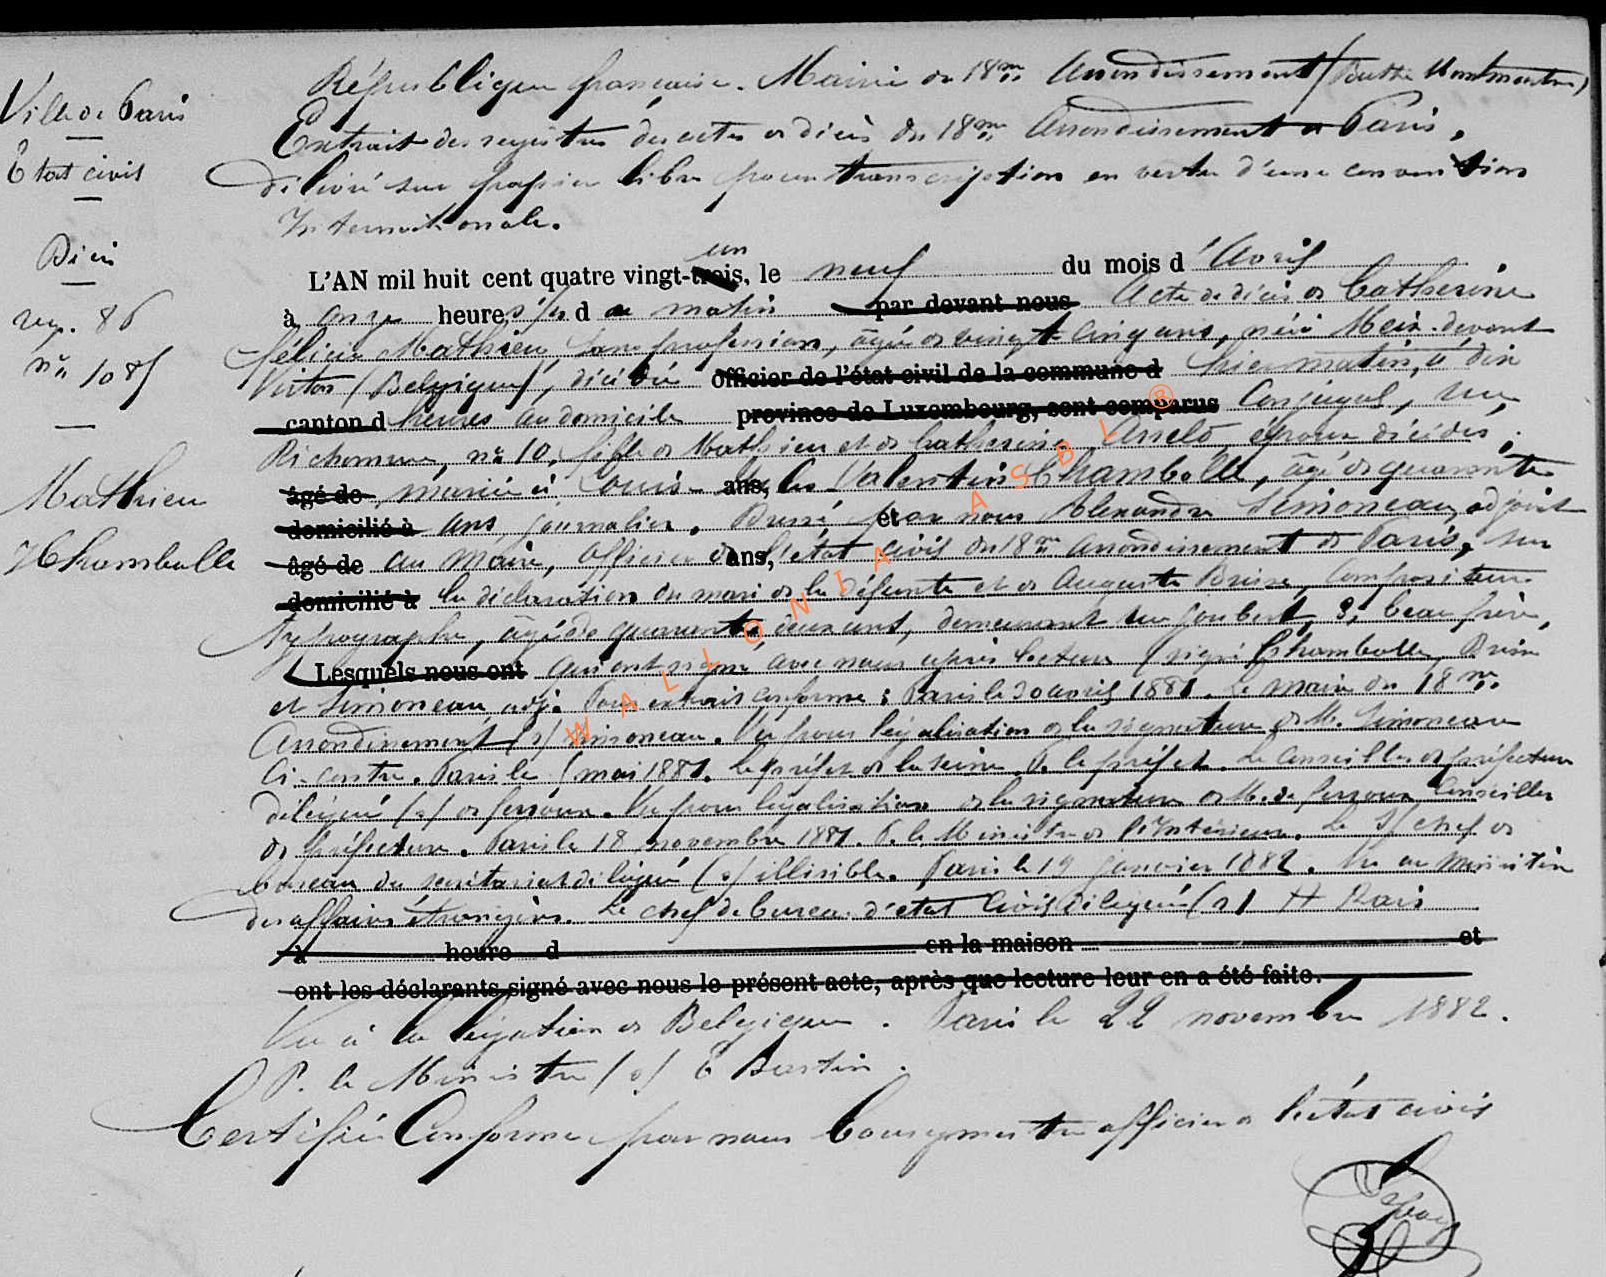 République française. Mairie du 18me Arrondissement (Butte Montmartre)
Ville de Paris
Extrait des registres des actes de décès du 18me Arrondissement de Paris,
Etat civil
délivré sur papier libre pour transcription en vertu d'une convention
Internationale.
Décès
un
L'AN mil huit cent quatre vingt-trois, le neuf du mois d'Avril
reg. 86
à onze heures du matin par devant nous Acte de décès de Catherine
n° 1085
félicie Mathieu, sans profession, âgée de vingt cinq ans, née Meix-devant
Virton (Belgique), décédée officier de l'état civil de la commune d hier matin, à dix
canton d heures au domicile province de Luxembourg, sont comparus Conjugal, rue
Richomme, n° 10, fille de Mathieu et de Catherine époux décédés;
Mathieu
âgé de mariée à Louis ans, Valentin Chambolle, âgé de quarante
domicilié à ans journalier. Dressé et par nous Alexandre Simoneau, adjoint
Chambolle
âgé de au Maire, officier de ans, l'état civil du 18me arrondissement de Paris, sur
domicilié à la déclaration du mari de la défunte et de Auguste compositeur
typographe, âgé de quarante deux ans, demeurant rue Joubert, beau frère,
Lesquels nous ont qui ont signé avec nous après lecture (signé Chambolle,
et Simoneau adj. Pour extrait conforme : Paris le 20 avril 1881. Le maire du 18me
Arrondissement (s) Simoneau. Vu pour légalisation de la signature de M. Simoneau
ci-contre. Paris le mai 1881. Le préfet de la Seine P. le préfet. Le Conseiller de préfecture
délégué (s) de Vu pour légalisation de la signature de M. de Conseiller
de préfecture. Paris le 18 novembre 1881. P. le Ministre de l'Intérieur. Le s/chef de
bureau du secrétariat délégué (s) illisible. Paris le 19 janvier 1882. Vu au Ministère
des affaires étrangères. Le chef de bureau d'état civil délégué (s)
à heure d en la maison et
ont les déclarants signé avec nous le présent acte, après que lecture leur en a été faite.
Vu à la légation de Belgique. Paris le 22 novembre 1882.
P. le Ministre (s) E Bastin.
Certifié Conforme par nous bourgmestre officier de l'état civil
WALLONIA ASBL ®